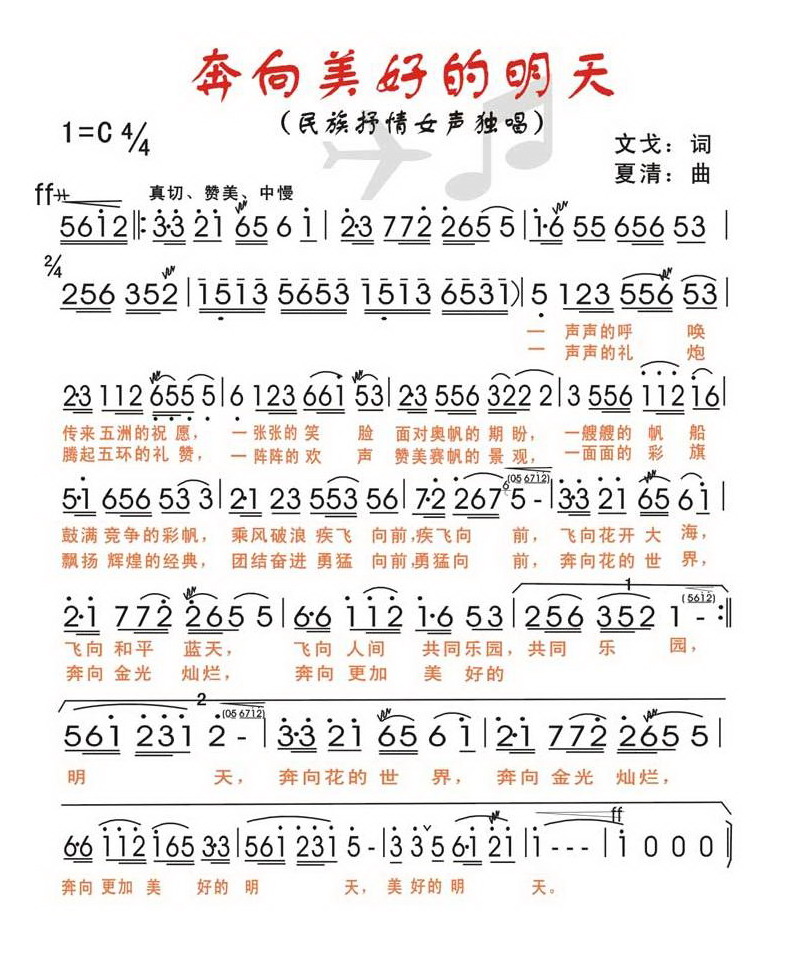 奔向美好的明天
(民族抒情女声独唱)
1=C 4/4
文戈:词
夏清:曲
ff 真切、赞美、中慢
5612 ‖: 3·3 21 65 6 1 | 2·3 772 265 5 | 1·6 55 656 53 |
2/4
256 352 | 1513 5653 1513 6531) | 5 123 556 53 |
一 声声的呼 唤
一 声声的礼 炮
2·3 112 655 5 | 6 123 661 53 | 2·3 556 322 2 | 3 556 112 16 |
传来五洲的祝愿, 一张张的笑 脸 面对奥帆的期盼, 一艘艘的 帆 船
腾起五环的礼赞, 一阵阵的欢 声 赞美赛帆的景观, 一面面的 彩 旗
(05 6712)
5·1 656 53 3 | 2·1 23 553 56 | 7·2 267 5 - | 3·3 21 65 6 1 |
鼓满 竞争的彩帆, 乘风破浪 疾飞 向前,疾飞向 前, 飞向花开大 海,
飘扬 辉煌的经典, 团结奋进 勇猛 向前,勇猛向 前, 奔向花的世 界,
1 (5612)
2·1 772 265 5 | 6·6 112 1·6 53 | 256 352 1 - :‖
飞向 和平 蓝天, 飞向 人间 共同乐园,共同 乐 园,
奔向 金光 灿烂, 奔向 更加 美 好的
2 (05 6712)
561 231 2 - | 3·3 21 65 6 1 | 2·1 772 265 5 |
明 天, 奔向花的 世 界, 奔向 金光 灿烂,
ff
6·6 112 165 3·3 | 561 231 5 - | 3 35 6·1 21 | 1 - - - | 1 0 0 0 |
奔向 更加 美 好的 明 天, 美好的 明 天。